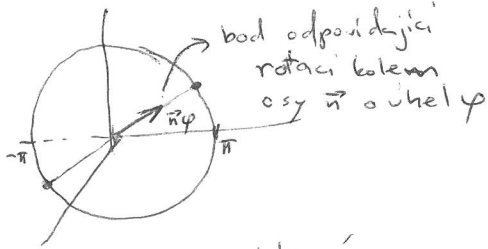 bod odpovídající
rotaci kolem
osy n⃗ o úhel φ
n⃗φ
-π
π